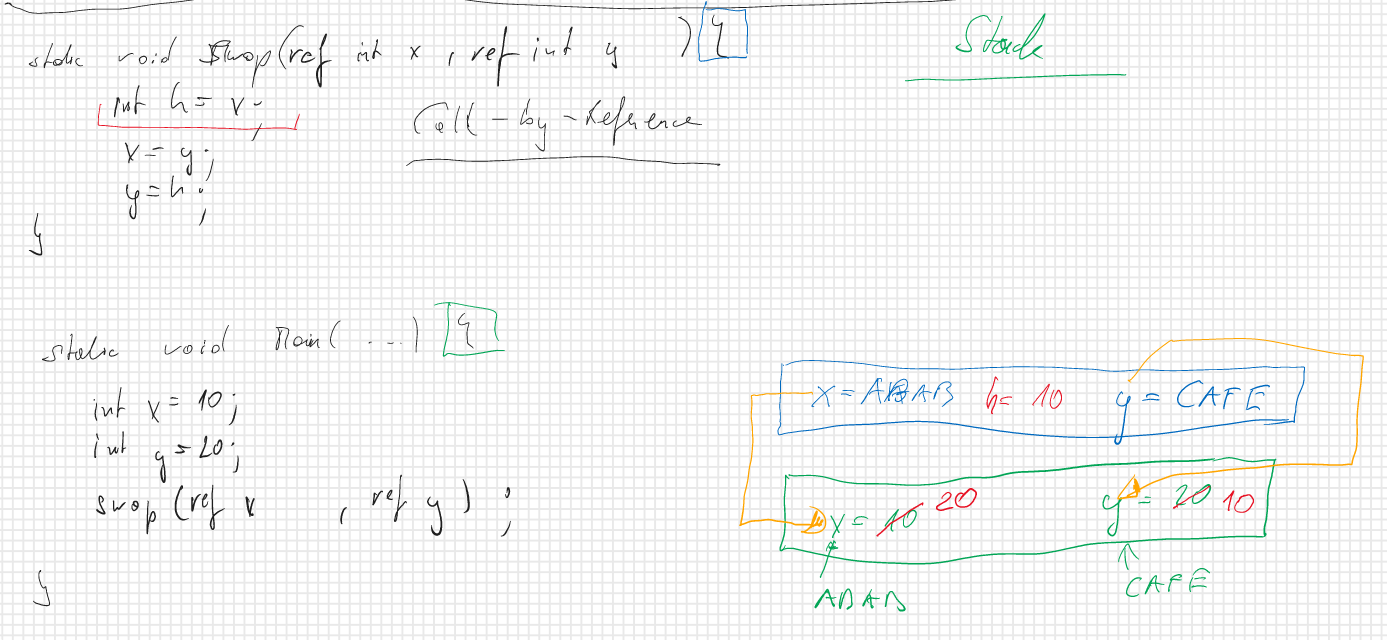 static void Swap(ref int x , ref int y ) {
Stack
int h = x;
Call-by-Reference
x = y;
y = h;
}
static void Main( ... ) {
int x = 10;
int y = 20;
swap (ref x , ref y ) ;
}
x = ABAB h= 10 y = CAFE
x = 10 20 y = 20 10
ABAB CAFE